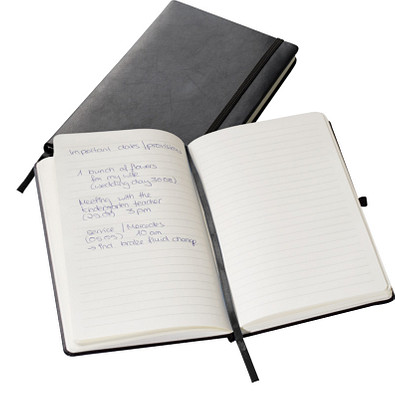 Important dates / provisions
1 bunch of flowers
for my wife
(wedding day 30.08)
Meeting with the
kindergarten teacher
(05.09) 3 pm
service / Mercedes
(05.09) 10 am
→ incl. brake fluid change